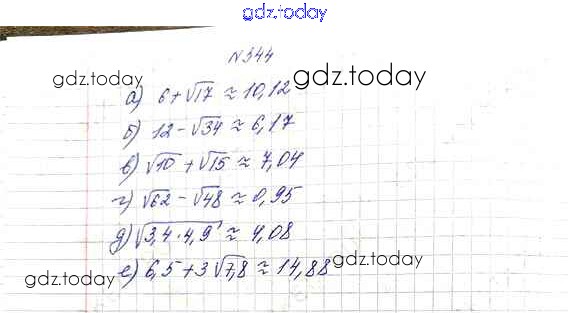 gdz.today
N344
gdz.today
gdz.today
а) 6+√17 ≈ 10,12
б) 12-√34 ≈ 6,17
в) √10 + √15 ≈ 7,04
г) √62 - √48 ≈ 0,95
д) √3,4·4,9 ≈ 4,08
gdz.today
е) 6,5+3√7,8 ≈ 14,88
gdz.today